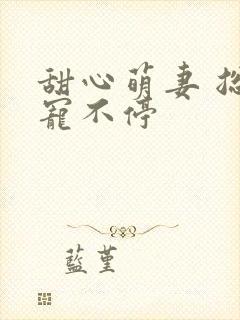 甜心萌妻
寵不停
藍堇